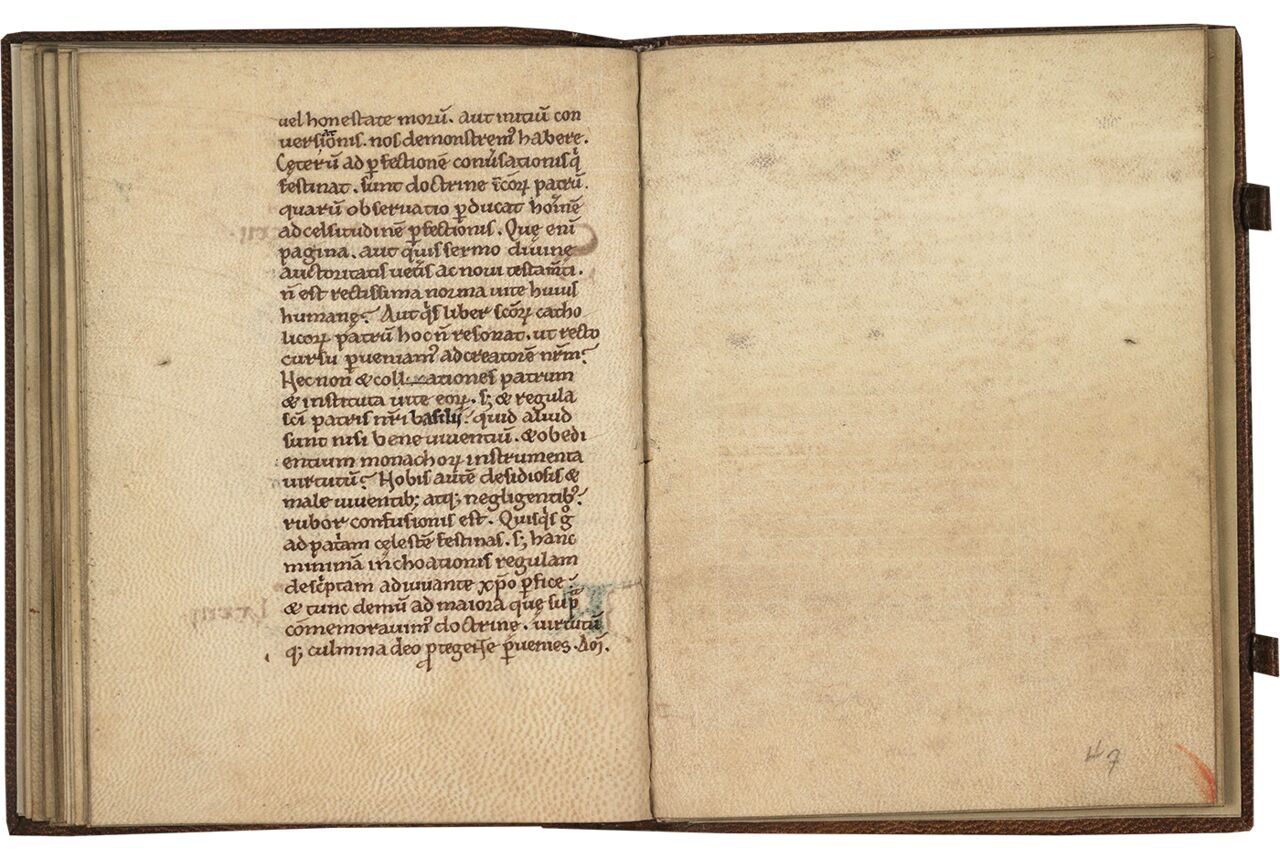 uel honestate morū. aut initiū con
uersationis. nos demonstrem᷒ habere.
Cęterū ad ꝑfectionē conuˀsationis qͥ
festinat. sunt doctrine sc̄oꝝ patrū.
quarū obseruatio ꝑducat homīnē
ad celsitudinē ꝑfectionis. Quę eni̅
pagina. aut quis sermo diuinę
auctoritatis uetˀis ac noui testam̄ti.
n̄ est rectissima norma uite huius
humanę? Aut qͥs liber sc̄oꝝ catho
licoꝝ patrū hoc n̄ resonat. ut recto
cursu ꝑueniam᷒ ad creatorē nr̄m?
Hec non & collationes patrum
& instituta uite eoꝝ. s; & regula
sc̄i patris nr̄i basilij? quid aliud
sunt nisi bene uiuentiū. & obedi
entium monachoꝝ instrumenta
uirtutū? Nobis autē desidiosis &
male uiuentib; atq; negligentib᷒?
rubor confusionis est. Quisqͥs gͦ
ad patͥam cęlestē festinas. s; hanc
minimā inchoationis regulam
descͥptam adiuuante xp̄o ꝑfice.
& tunc demū ad maiora que sup̄
cōmemorauim᷒ doctrine. uirtutū
q; culmina deo ꝓtegente ꝑuenies.
47